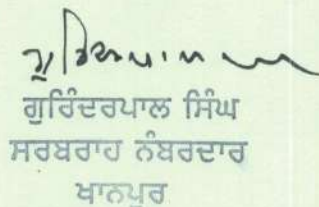 ਗੁਰਿੰਦਰਪਾਲ ਸਿੰਘ
ਸਰਬਰਾਹ ਨੰਬਰਦਾਰ
ਖਾਨਪੁਰ